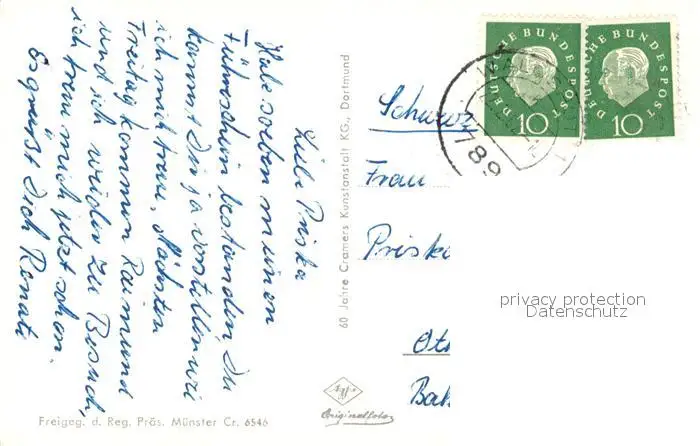 Liebe Priska
Habe soeben meinen
Führerschein bestanden. Du
kannst Dir ja vorstellen wie
ich mich freue. Nächsten
Freitag kommen Raimund
und ich wieder zu Besuch,
ich freu mich jetzt schon.
Es grüsst Dich Renate
Freigeg. d. Reg. Präs. Münster Cr. 6546
60 Jahre Cramers Kunstanstalt KG., Dortmund
Agfa
Originalfoto
DEUTSCHE BUNDESPOST
10
DEUTSCHE BUNDESPOST
10
789
Schweiz
Frau
Priska
privacy protection
Datenschutz